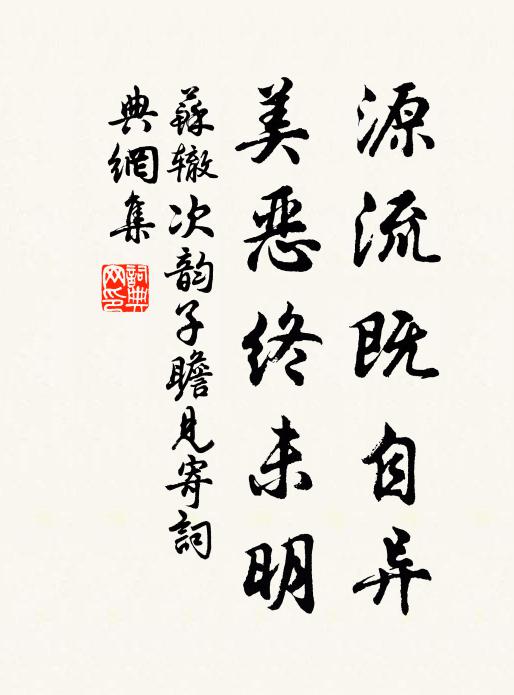 源流既自异
美恶终未明
蘇辙次韵子瞻见寄詞
典網集
詞典
网印